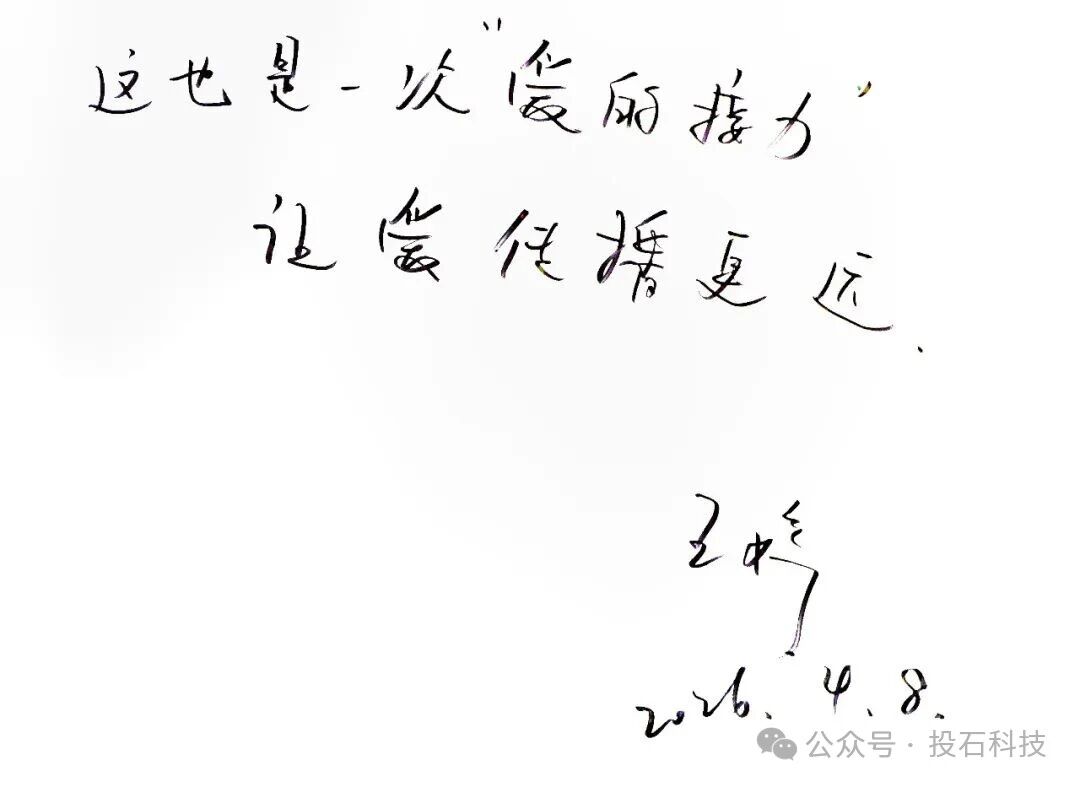 这也是一次“爱的接力”
让爱传播更远.
王
2026.4.8.
公众号·投石科技